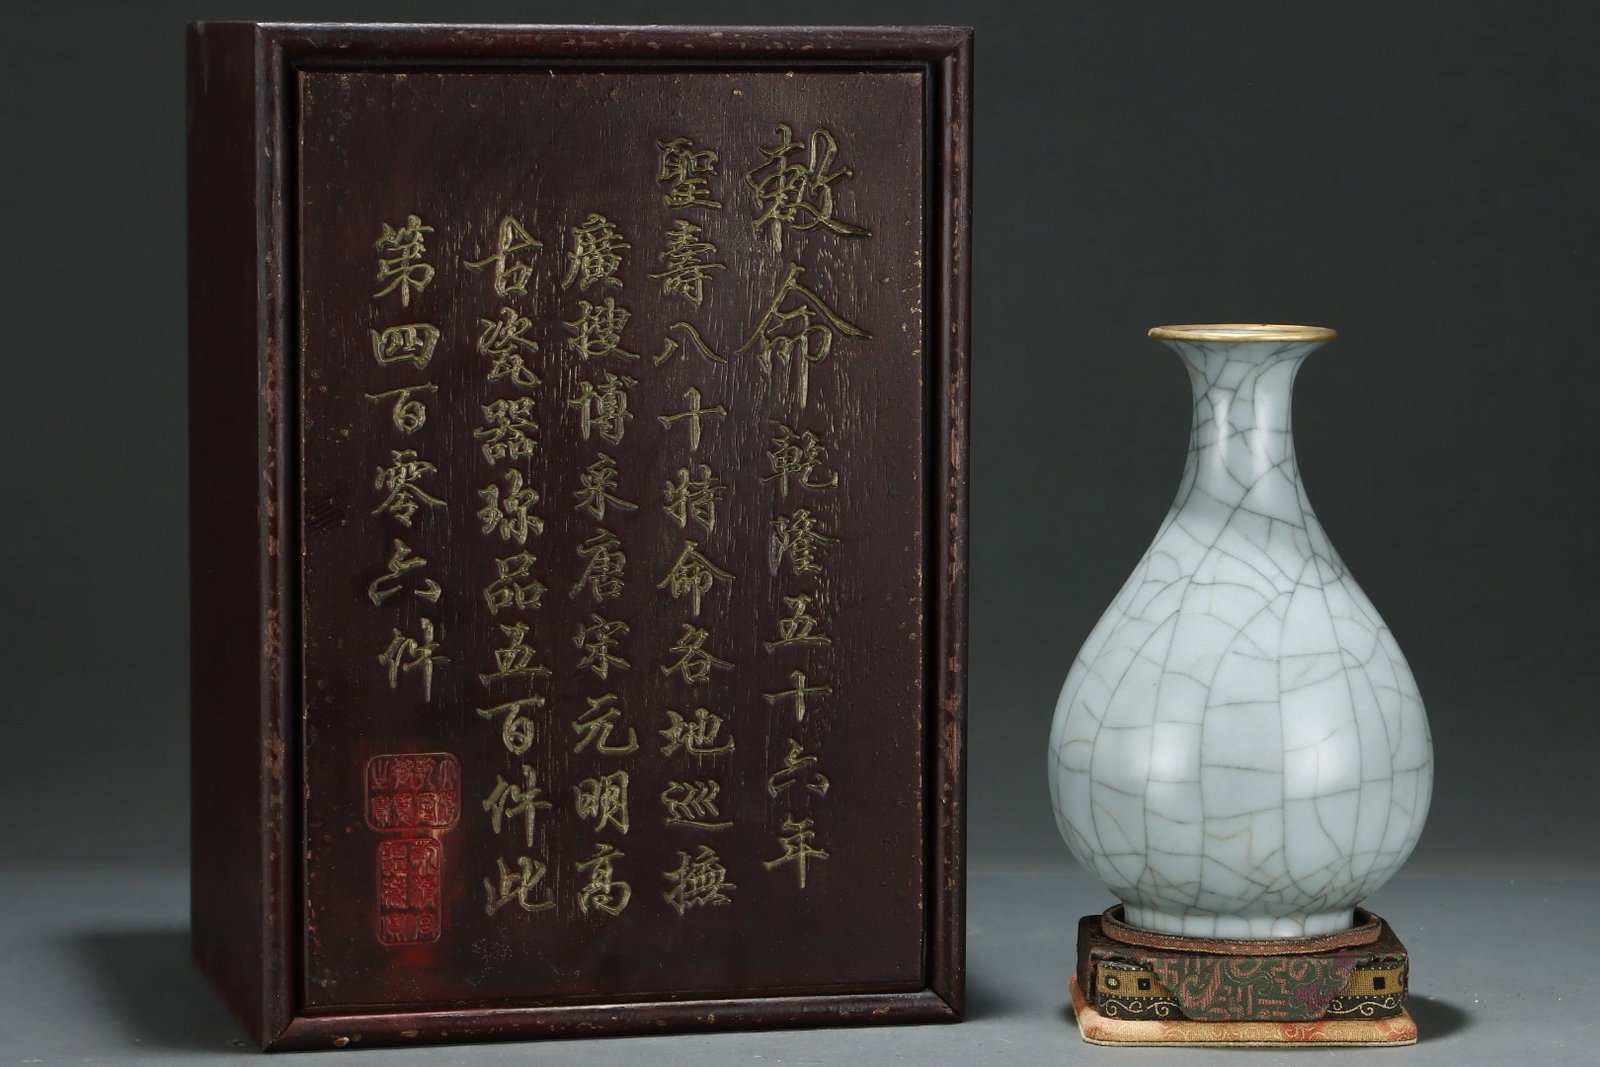 敕命乾隆五十六年
聖壽八十特命各地巡撫
廣搜博采唐宋元明高
古瓷器珍品五百件此
第四百零六件